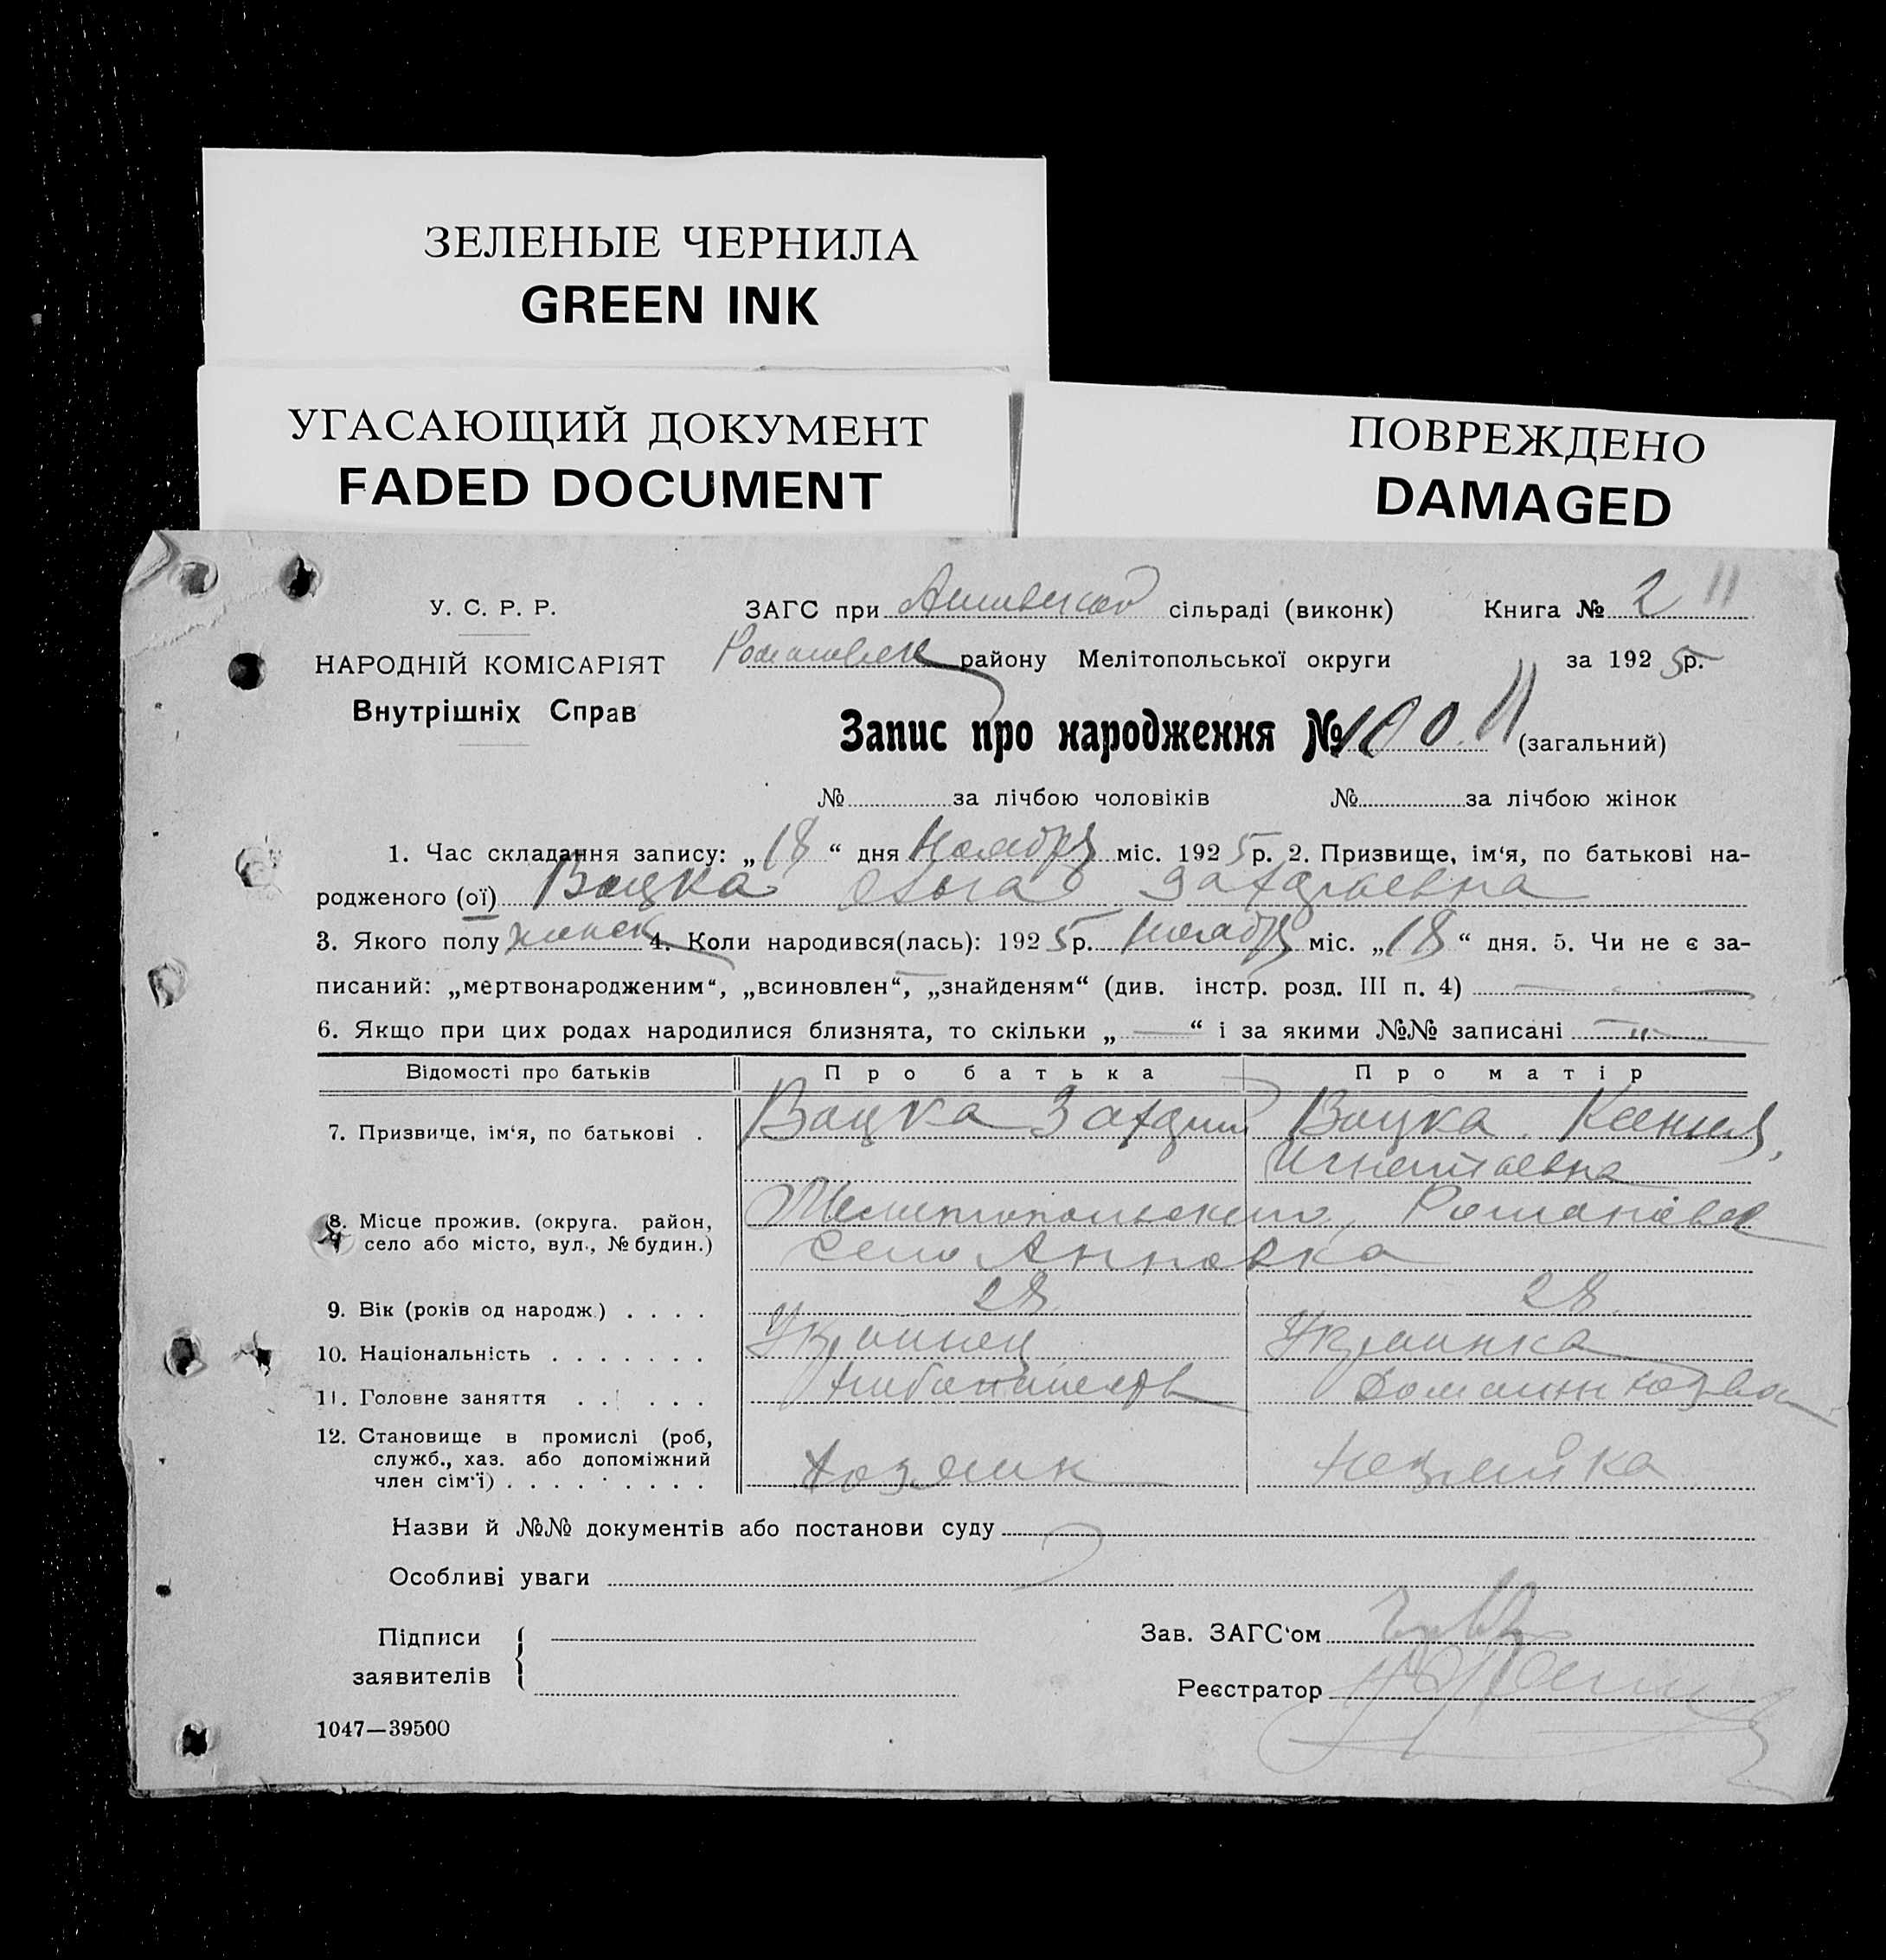 ЗЕЛЕНЫЕ ЧЕРНИЛА
GREEN INK
УГАСАЮЩИЙ ДОКУМЕНТ
FADED DOCUMENT
ПОВРЕЖДЕНО
DAMAGED
У. С. Р. Р.
НАРОДНІЙ КОМІСАРІЯТ
Внутрішніх Справ
ЗАГС при сільраді (виконк) Книга № 2 11
району Мелітопольської округи за 1925р.
Запис про народження № 100 11 (загальний)
№ за лічбою чоловіків № за лічбою жінок
1. Час складання запису: „18“ дня Ноября міс. 1925р. 2. Призвище, ім‘я, по батькові на-
родженого (ої) Вацка Ольга
3. Якого полу женск 4. Коли народився(лась): 1925р. Ноября міс. „18“ дня. 5. Чи не є за-
писаний: „мертвонародженим“, „всиновлен“, „знайденям“ (див. інстр. розд. III п. 4) —
6. Якщо при цих родах народилися близнята, то скільки „—“ і за якими №№ записані — „ —
Відомості про батьків Про батька Про матір
7. Призвище, ім‘я, по батькові . Вацка Вацка Ксения
Игнатьевна
8. Місце прожив. (округа. район, Мелитопольского,
село або місто, вул., № будин.) село Анновка
9. Вік (років од народж.) . . . . 28 28
10. Національність . . . . . . . Украинец Украинка
11. Головне заняття . . . . . Хлебопашество
12. Становище в промислі (роб,
служб., хаз. або допоміжний
член сім‘ї) . . . . . . . . . Хозяин Хозяйка
Назви й №№ документів або постанови суду
Особливі уваги
Підписи
заявителів
Зав. ЗАГС‘ом
Реєстратор
1047—39500